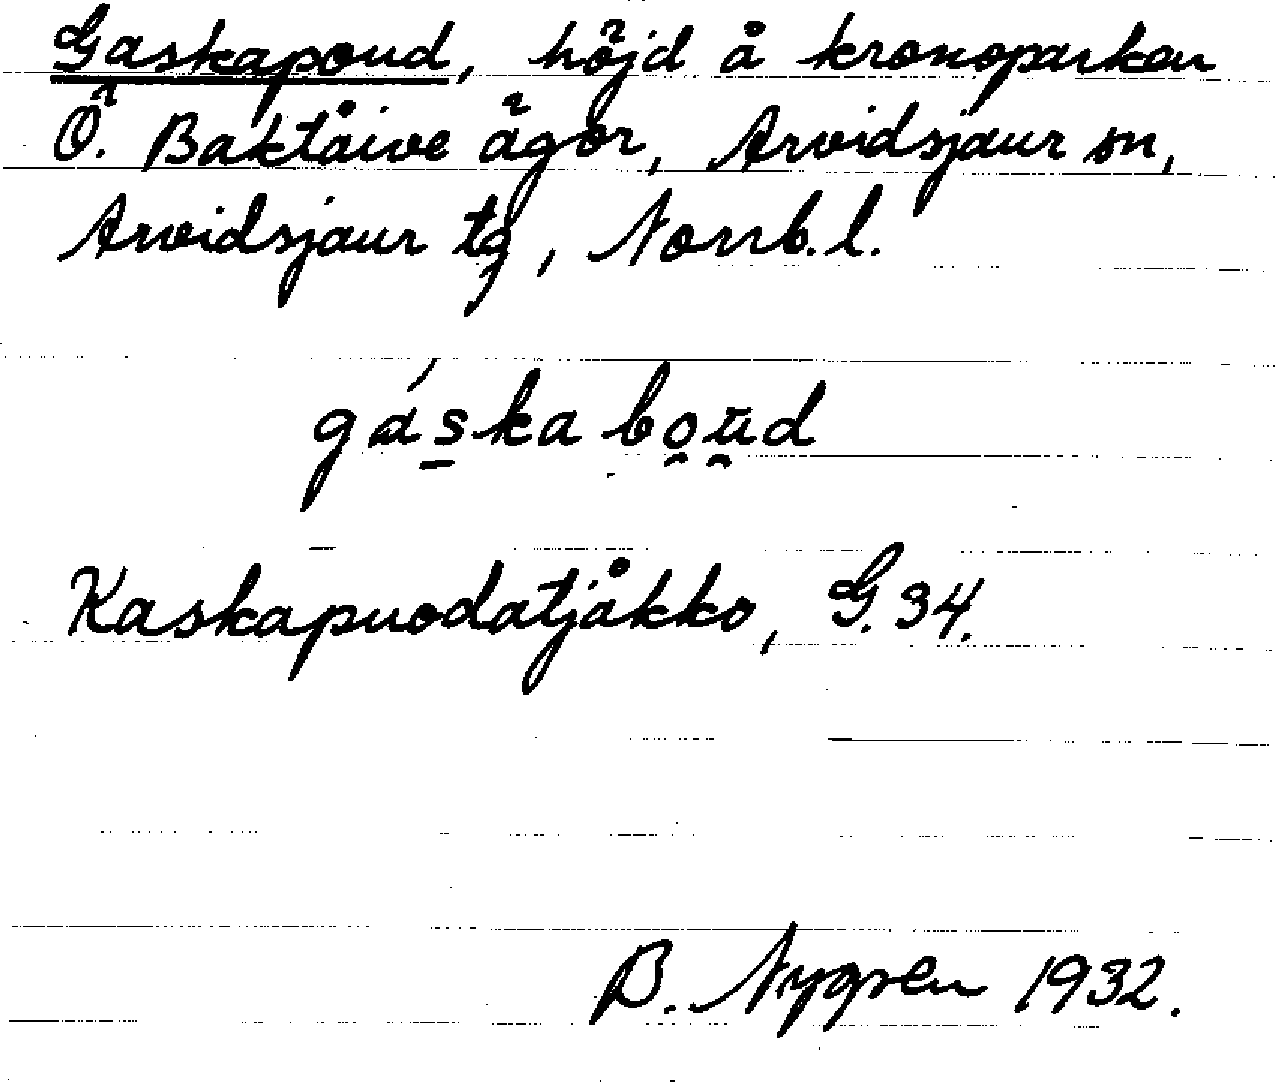 Gaskapoud, höjd å kronoparken
Ö. Baktåive ägor, Arvidsjaur sn,
Arvidsjaur tg, Norrb. l.
gás̱ka bo̯ū̯d
Kaskapuodatjåkko, G. 34.
B. Nygren 1932.